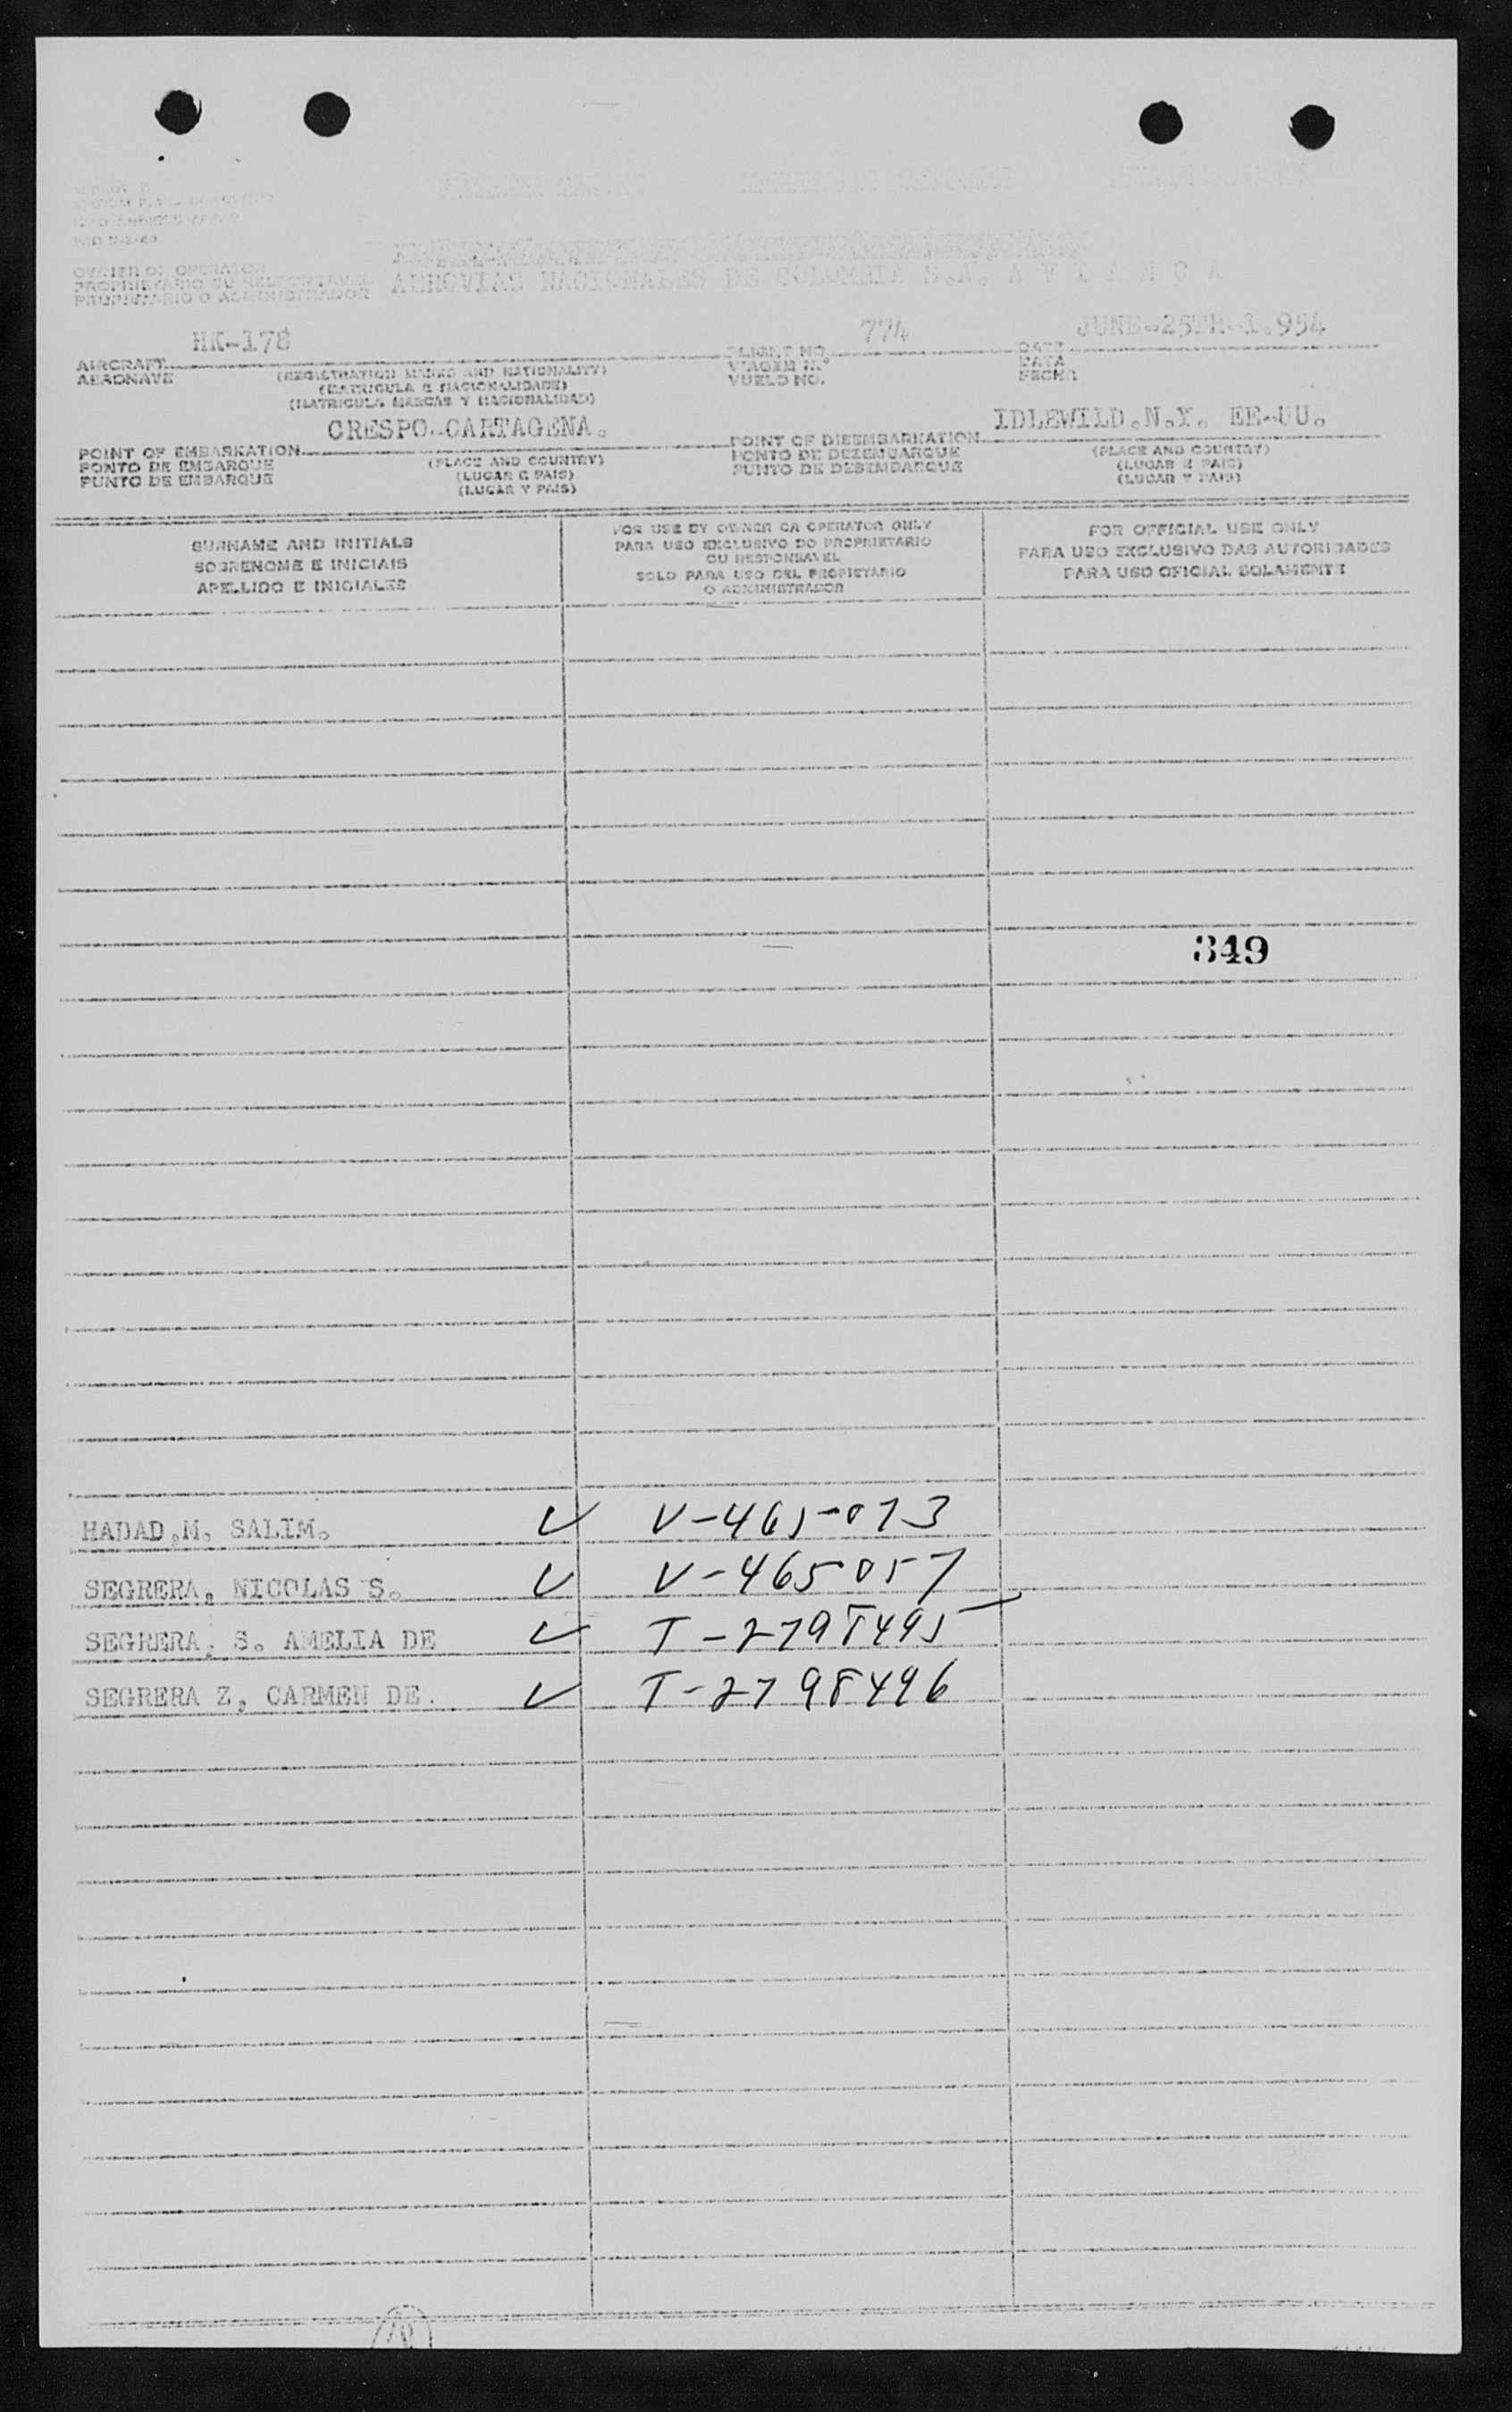 OWNER OR OPERATOR
PROPRIETARIO OU RESPONSAVEL
PROPIETARIO O ADMINISTRADOR
AEROVIAS NACIONALES DE COLOMBIA S.A. A V I A N C A
HK-178 774 JUNE-25TH-1.954
AIRCRAFT FLIGHT NO. DATE
AERONAVE (REGISTRATION MARKS AND NATIONALITY) VIAGEM N.º DATA
(MATRICULA E NACIONALIDADE) VUELO NO. FECHA
(MATRICULA MARCAS Y NACIONALIDAD)
CRESPO-CARTAGENA. IDLEWILD.N.Y. EE-UU.
POINT OF EMBARKATION POINT OF DISEMBARKATION
PONTO DE EMBARQUE (PLACE AND COUNTRY) PONTO DE DESEMBARQUE (PLACE AND COUNTRY)
PUNTO DE EMBARQUE (LUGAR E PAIS) PUNTO DE DESEMBARQUE (LUGAR E PAIS)
(LUGAR Y PAIS) (LUGAR Y PAIS)
SURNAME AND INITIALS
SOBRENOME E INICIAIS
APELLIDO E INICIALES
FOR USE BY OWNER OR OPERATOR ONLY
PARA USO EXCLUSIVO DO PROPRIETARIO
OU RESPONSAVEL
SOLO PARA USO DEL PROPIETARIO
O ADMINISTRADOR
FOR OFFICIAL USE ONLY
PARA USO EXCLUSIVO DAS AUTORIDADES
PARA USO OFICIAL SOLAMENTE
349
HADAD,M. SALIM. V-465073
SEGRERA, NICOLAS S. V-465057
SEGRERA, S. AMELIA DE T-2798495
SEGRERA Z, CARMEN DE. T-2798496